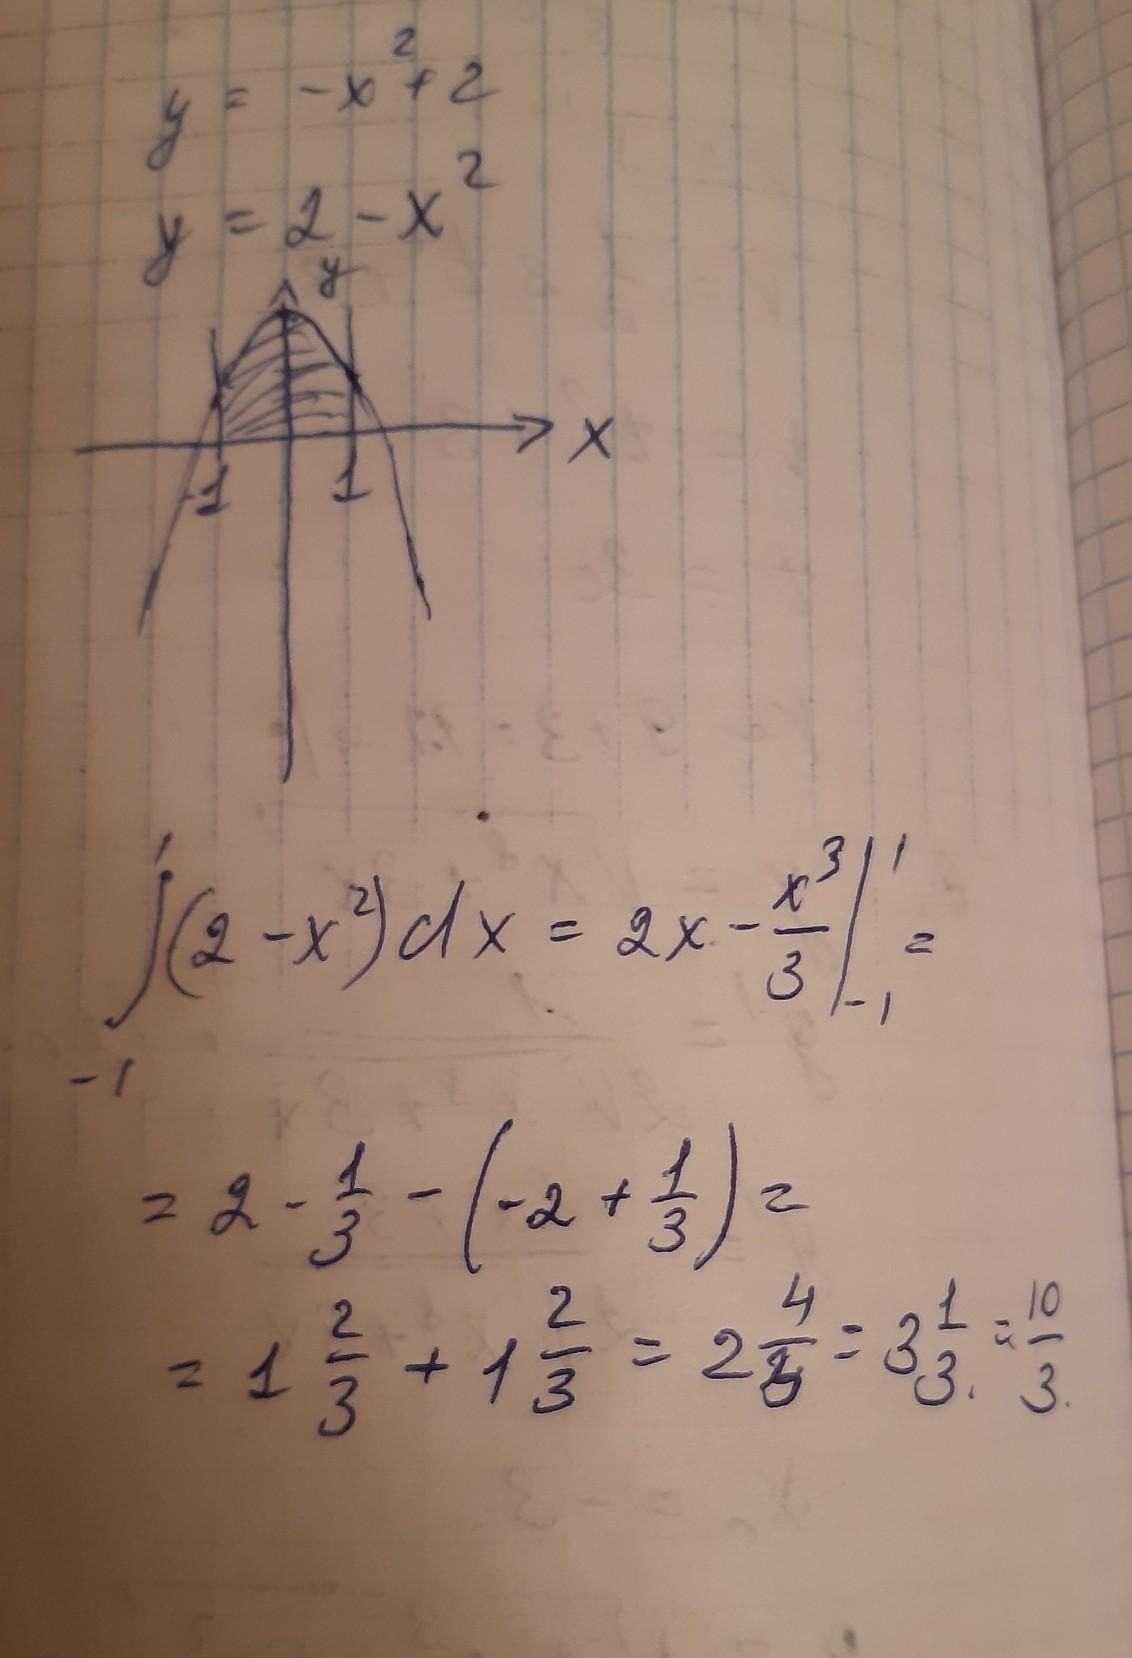 y = -x² + 2
y = 2 - x²
y
x
-1 1
∫₋₁¹ (2 - x²) dx = 2x - x³/3 |₋₁¹ =
= 2 - 1/3 - (-2 + 1/3) =
= 1 2/3 + 1 2/3 = 2 4/3 = 3 1/3 = 10/3.